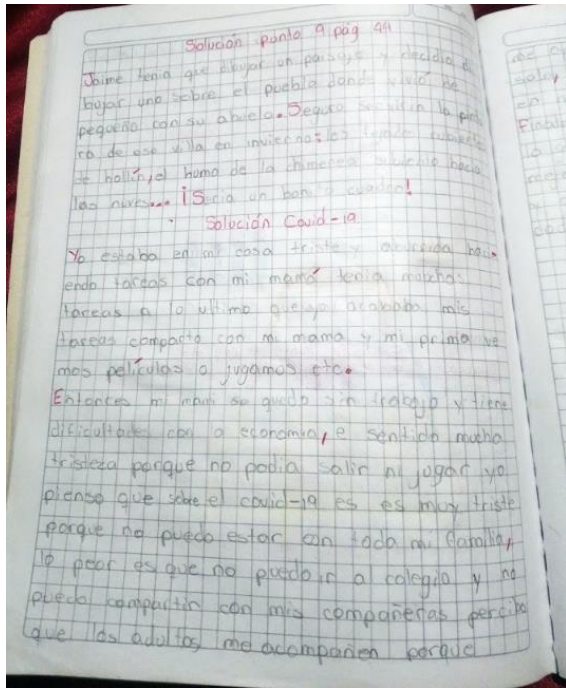 Solución punto 9 pág 44
Jaime tenia que dibujar un paisaje y decidio
bujar uno sobre el pueblo donde vivió de
pequeño con su abuelo. Seguro la
ra de ese villa en invierno: los
de hollín, el humo de la chimenea hacia
las nuves... ¡Seria un cuadro!
Solución Covid-19
Yo estaba en mi casa triste y aburrida haci-
endo tareas con mi mamá tenia muchas
tareas a lo ultimo que yo acababa mis
tareas comparto con mi mama y mi prima ve
mos películas o jugamos etc.
Entonces mi mami se quedo sin trabajo y tiene
dificultades con a economia, e sentido mucha
tristeza porque no podia salir ni jugar yo
pienso que sobre el covid-19 es es muy triste
porque no puedo estar con toda mi familia,
lo peor es que no puedo ir a colegio y no
puedo compartir con mis compañeras percibo
que los adultos me acompañen porque